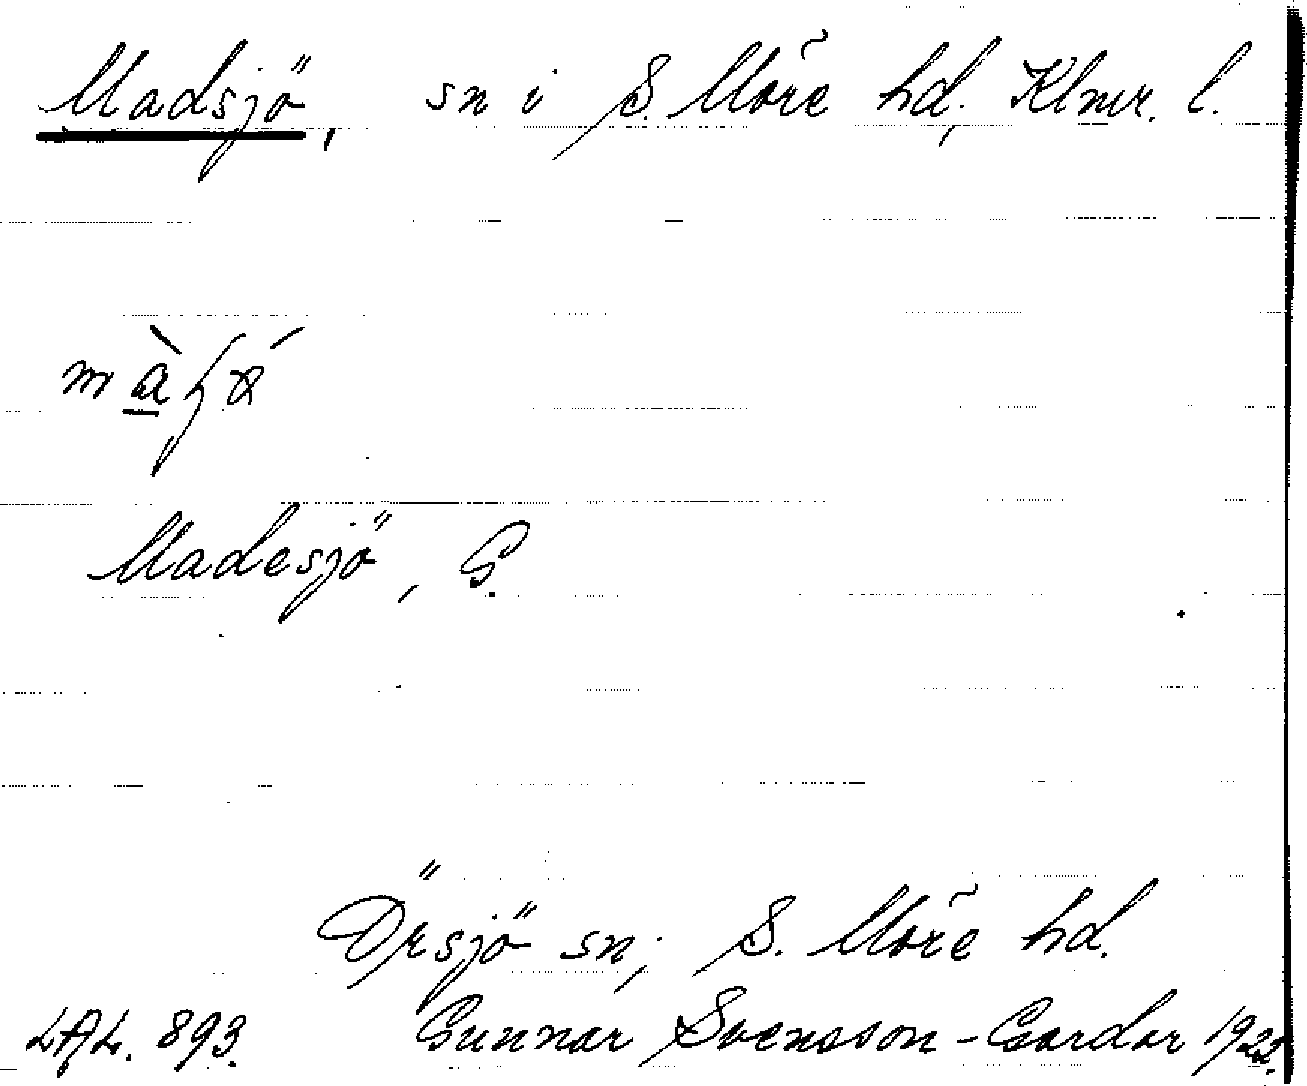 Madsjö, sn i S. Möre hd, Klmr. l.
Madesjö, G.
Örsjö sn; S. Möre hd.
LAL. 893. Gunnar Svensson-Gardar 1922.